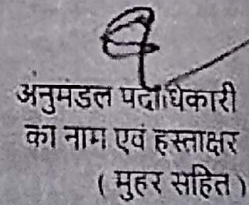 अनुमंडल पदाधिकारी
का नाम एवं हस्ताक्षर
( मुहर सहित )